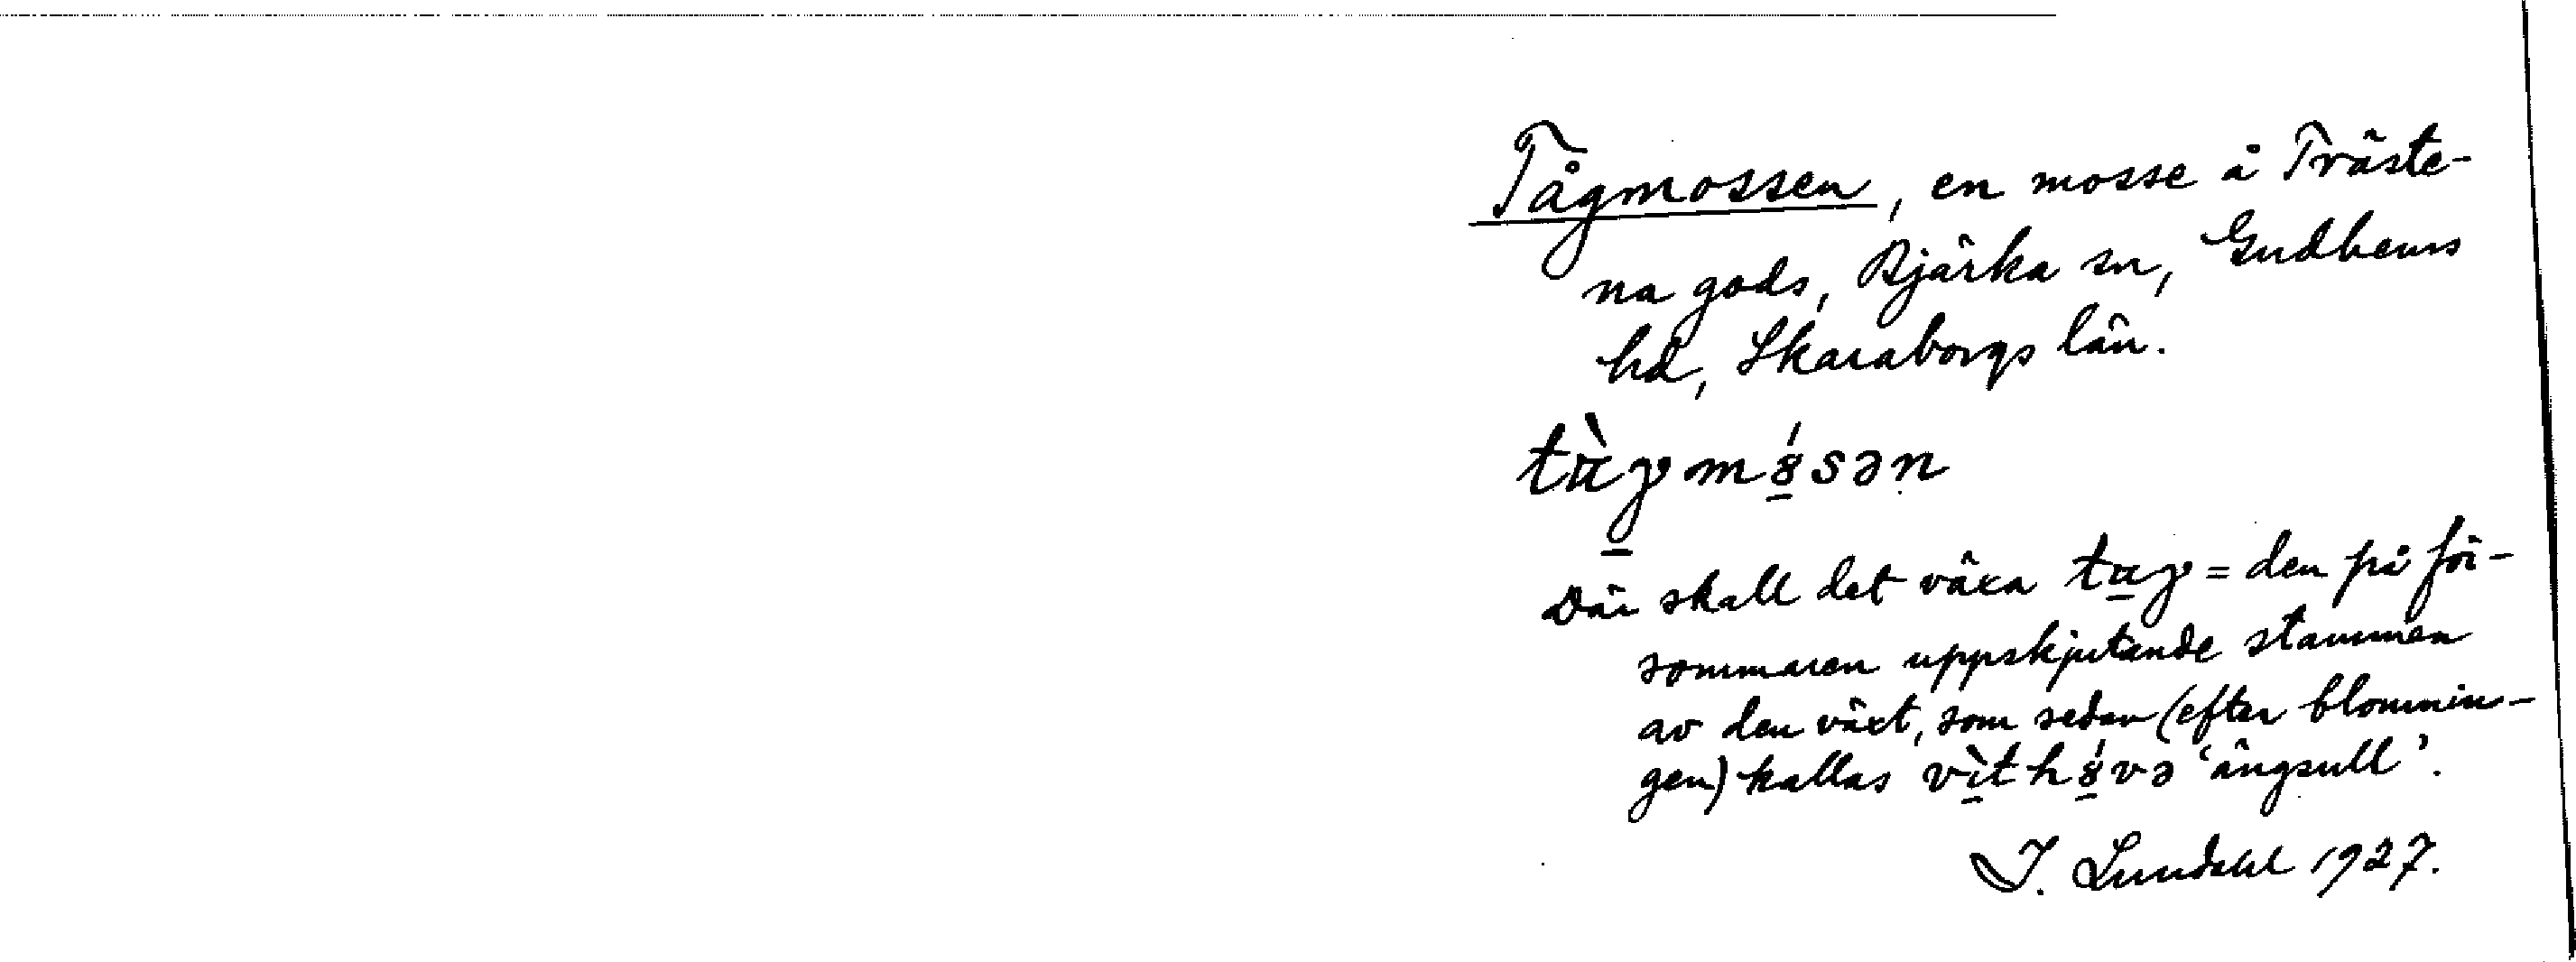 Tågmossen, en mosse å Träste-
na gods, Bjärka sn, Gudhems
hd, Skaraborgs län.
tàɡmȣ́sən
Där skall det växa taɡ = den på för-
sommaren uppskjutande stammen
av den växt, som sedan (efter blomnin-
gen) kallas vìthȣ́və ‘ängsull’.
I. Lundahl 1927.